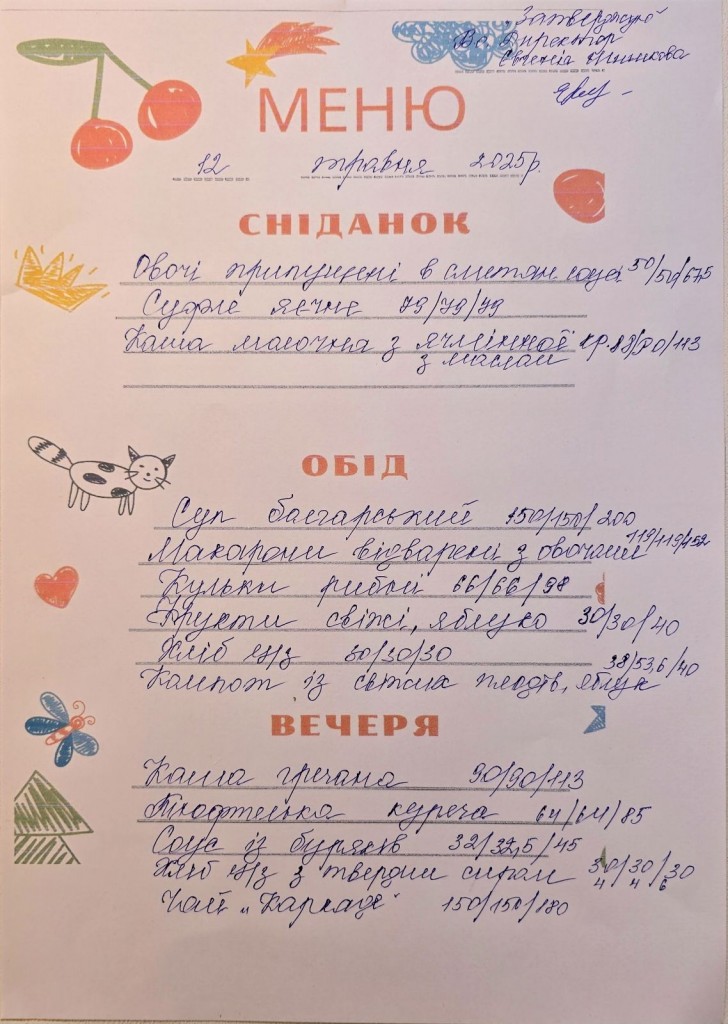 Затверджую
Во Директор
Євгенія
МЕНЮ
12 травня 2025р.
СНІДАНОК
Овочі припущені в сметан соусі 50/50/67,5
Суфле яєчне 79/79/79
Каша молочна з ячмінної кр. 90/113
з маслом
ОБІД
Суп болгарський 150/150/200
Макарони відварені з овочами 119/119/152
Кульки рибні 66/66/98
Фрукти свіжі, яблуко 30/30/40
Хліб ц/з 30/30/30
Компот із свіжих плодів, яблук 38/53,6/40
ВЕЧЕРЯ
Каша гречана 90/90/113
Тюфтелька куряча 64/64/85
Соус із буряків 32/32,5/45
Хліб ц/з з твердим сиром 30/30/30
4 4 6
Чай „Каркаде" 150/150/180